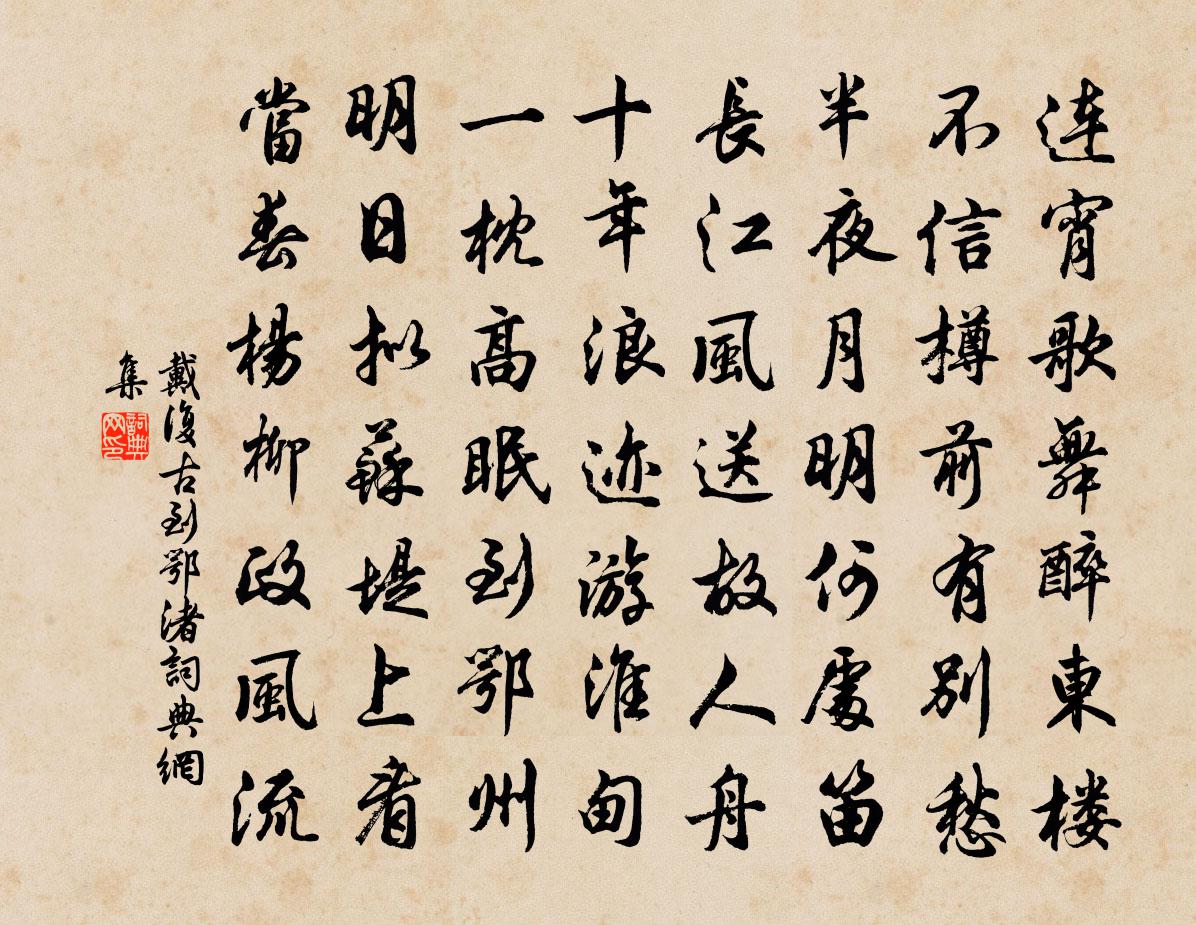 连宵歌舞醉東楼
不信樽前有别愁
半夜月明何處笛
長江風送故人舟
十年浪迹游淮甸
一枕高眠到鄂州
明日拟蘇堤上看
當春楊柳政風流
戴復古到鄂渚詞典網
集
詞典
网印